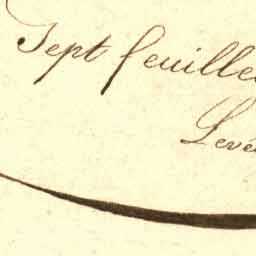 Sept feuille
Leve